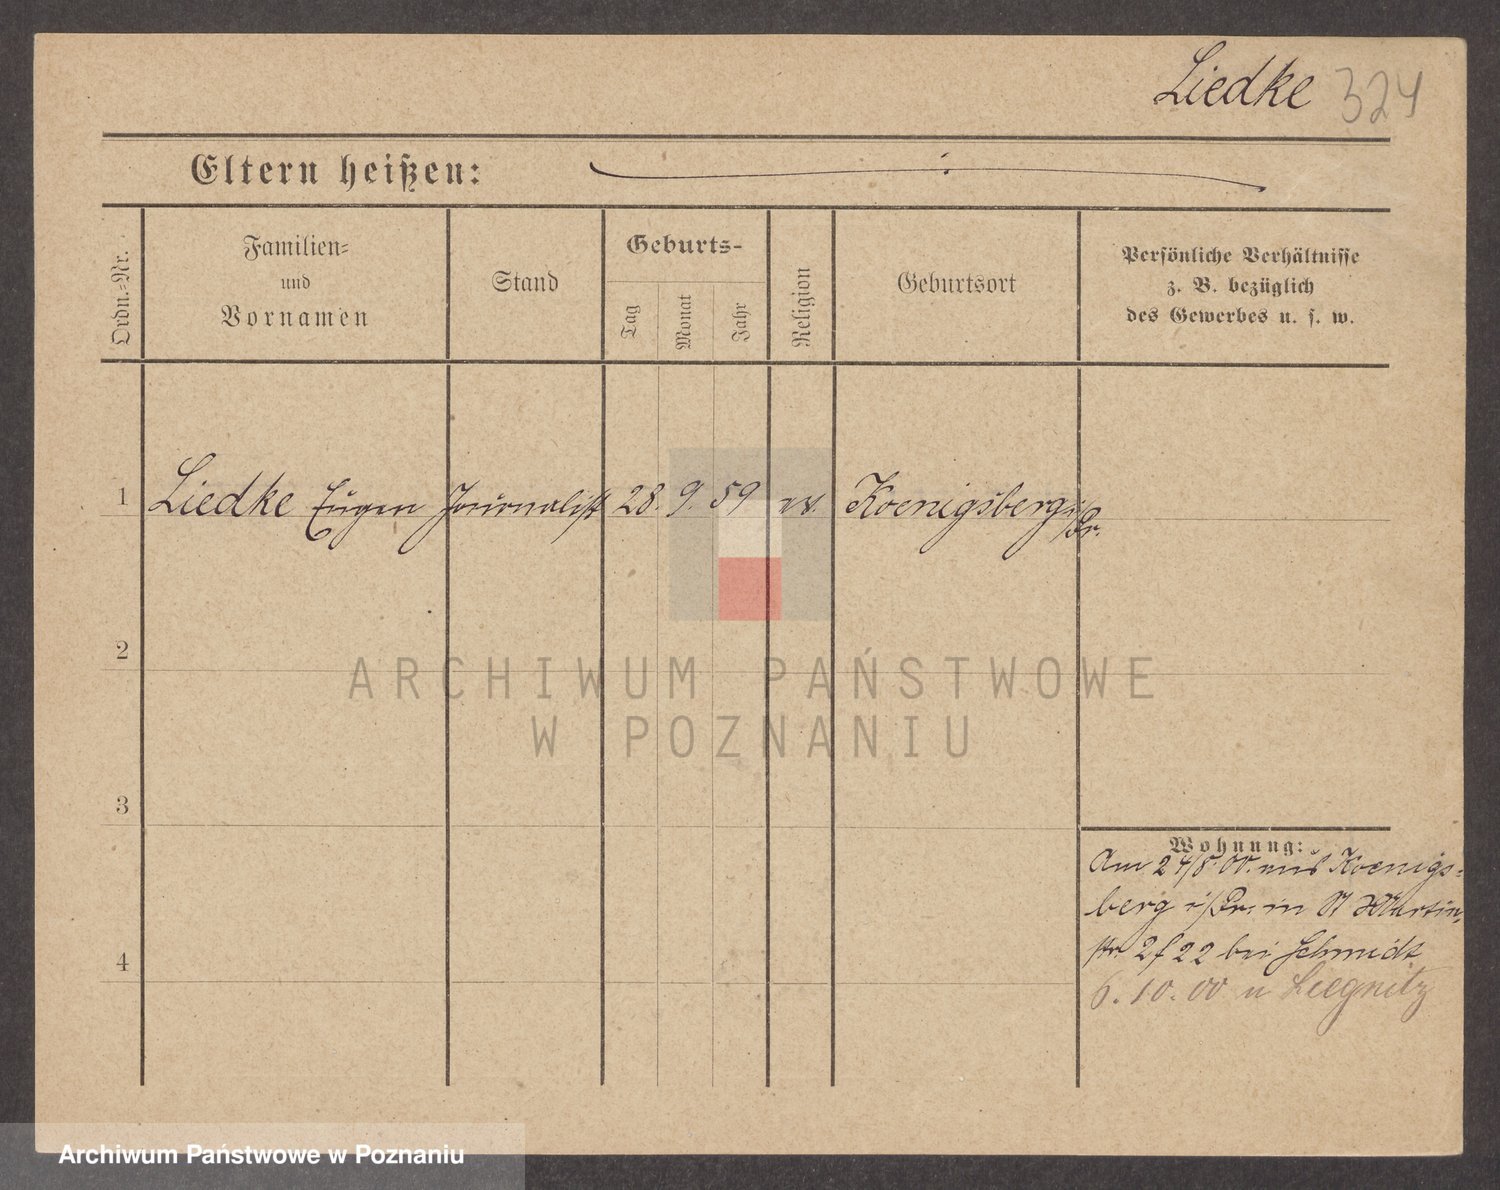 Liedke 324
Eltern heißen:
Ordn.-Nr.
Familien-
und
Vornamen
Stand
Geburts-
Tag
Monat
Jahr
Religion
Geburtsort
Persönliche Verhältnisse
z. B. bezüglich
des Gewerbes u. s. w.
1 Liedke Eugen Journalist 28. 9. 59 ev. Koenigsberg i/Pr.
2
ARCHIWUM PAŃSTWOWE
W POZNANIU
3
Wohnung:
Am 24/8.00. aus Koenigs-
berg i/Pr. in St Martin
str 2f 22 bei Schmidt
4
6.10.00 n Liegnitz
Archiwum Państwowe w Poznaniu